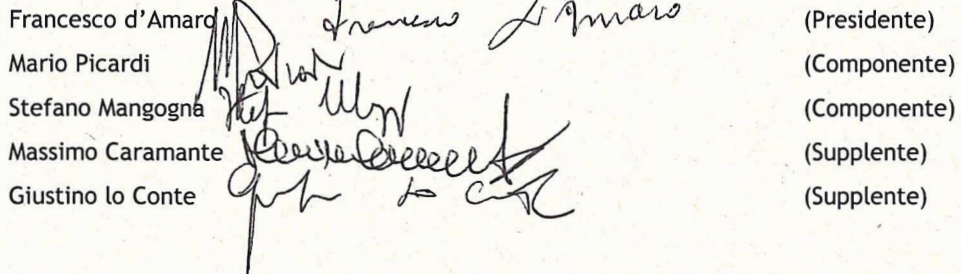 Francesco d'Amaro Francesco d'Amaro (Presidente)
Mario Picardi (Componente)
Stefano Mangogna (Componente)
Massimo Caramante (Supplente)
Giustino lo Conte (Supplente)